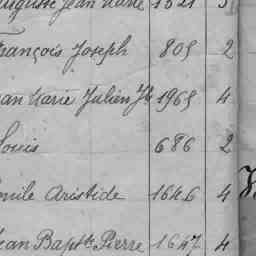 Auguste Jean Marie 1821 3
François Joseph 809 2
Jean Marie Julien Jh 1969 4
Louis 686 2
Emile Aristide 1646 4
Jean Bapt.te Pierre 1647 4